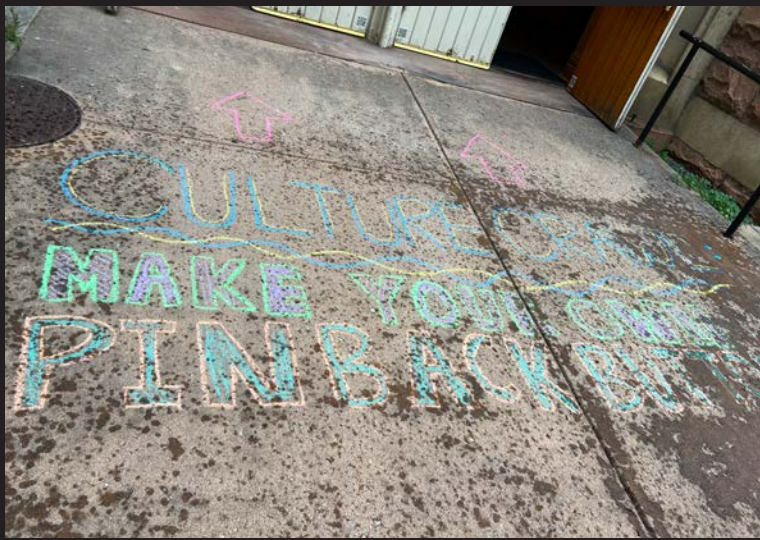 CULTURE CRAWL
MAKE YOUR OWN
PIN BACK BUTT